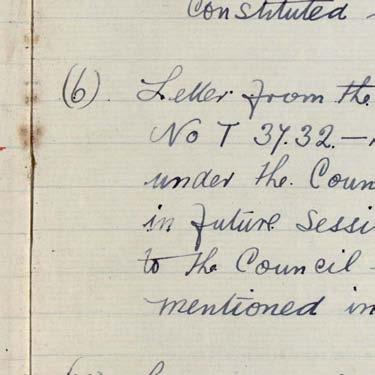 Constituted -
(6). Letter from the
No T 37.32. —
under the Coun
in future Sessi
to the Council -
mentioned in